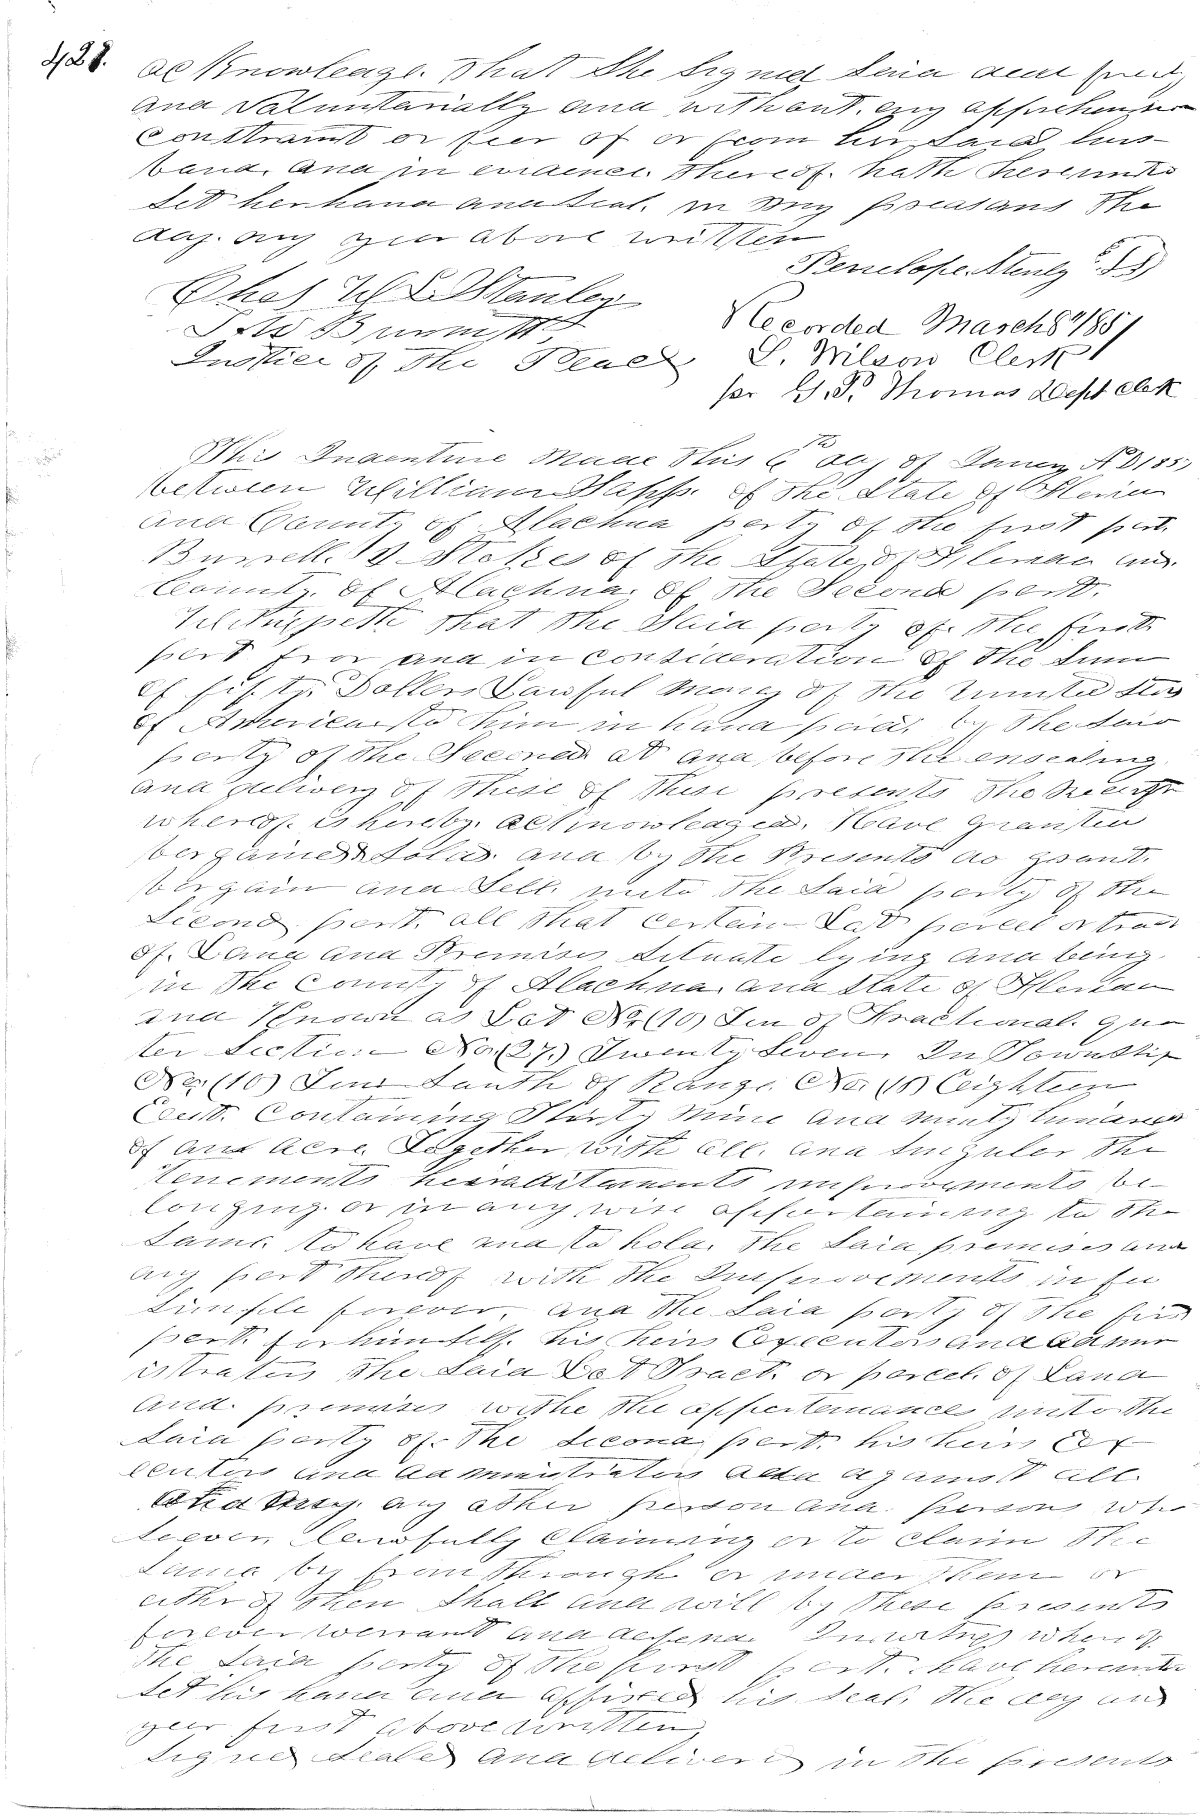 428.
acknowledge. that she signed said deed freely
and valuntarially and without. any apprehension
conttraint or feer of or from her said hus-
band. and in evidence. thereof. hath hereunto
set her hand and seal. in my preasans the
day. any year above written
Penelope. Stanly
Chas W L Stanley
Burnett,
Justice of the Peace
Recorded March 8th 1851
L. Wilson Clerk
per G. P. Thomas Dept clerk
This Indenture made this 6th day of January AD 185
between William Sapp. of the State of Florida
and County of Alachua party of the first part.
Burrell. Stokes of the State of Florida and.
County. of Alachua. of the Second part.
Witnisspeth that the said party of. the first
part fror and in consideration of the sum
of fifty. Dollers Lawful money of the Uunited Stas
of America. to him in hand paid. by the said
perty of the Second. at and before the ensealing.
and delivery of these of these presents the receipt
whereof. is hereby. acknowledged. Have grantin
bergained & sold. and by the Presents do grant.
bergain and sell. unto the said perty of the
Second. part. all that certain Lot percel or tract
of. Land and Premises situate lying and being.
in the County of Alachua. and State of Florida
and Known as Lot No (10) Ten of Fractional. qua
ter Section No (27.) Twenty Seven. In Township
No. (10) Ten South of Range. No. (18) Eighteen
East. Containing Thirty Nine and ninty hundred
of and acre. Together with all. and singuler the
tenements heiraditaments improvements be-
longing. or in any wise appertaining to the
same. to have and to hold. the said premises and
any part thereof with the Improvements in fee
simple forever, and the said party of the first
part. for himself. his heirs Executors and admin
istrators the said Lot Tract. or parcel. of Land
and. premises withe the appertenances unto the
said party of. the second part. his heirs Ex
ecutors and administrators against all.
any other person and. persons who
soever. lawfully claiming or to claim the
same by from through or under them or
eithr of then shall and will by these presents
forever werrant and defend. In witness whereof
the said party of the first part. have hereunto
set his hand and affixed his seal. the day and
year first above written,
Signed Sealed and delivered in the presents